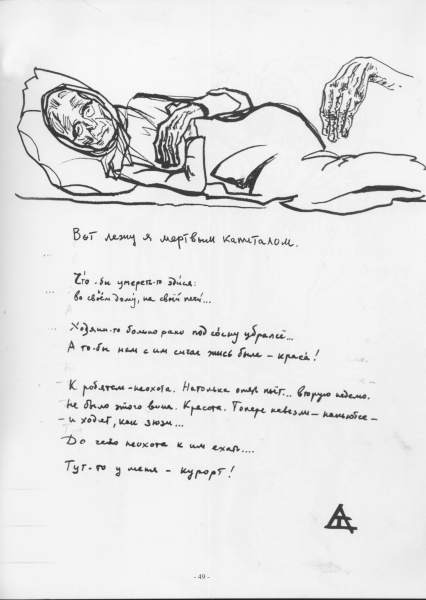 Вот лежу я мертвым капиталом.
Что-бы умереть-то здися:
во своём дому, на своій печи...
Хозяин-то больно рано под сосну убрался...
А то-бы нам с им сичас жись была – краса!
К робятам – неохота. Наталька опять пьёт... вторую неделю.
Не было этого вина. Красота. Топере навезли – напьются –
– и ходят, как зюзи...
До чево неохота к им ехать....
Тут-то у меня – курорт!
- 49 -